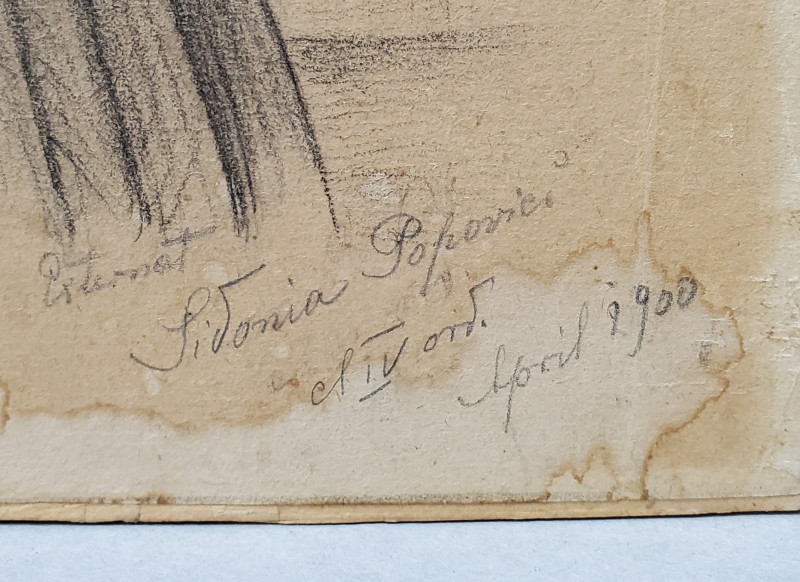 Externat
Sidonia Popovici
cl IV ord.
April 1900